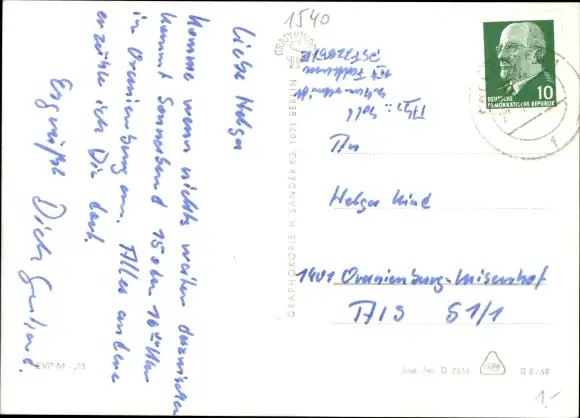 1540
Liebe Helga
Komme wenn nichts weiter dazwischen
kommt Sonnabend 15 oder 16 00 Uhr
in Oranienburg an. Alles andere
erzähle ich Dir dort.
Es grüßt Dich Gerhard.
EVP M -,20
GRAPHOKOPIE H. SANDER KG, 1071 BERLIN
Abs.: Gefr.
1254 Fachhausen
An
Helga Kind
1401 Oranienburg-
AIS 51/1
DEUTSCHE
DEMOKRATISCHE REPUBLIK
10
Best.-Nr. D 2636
B 8/69
1.-